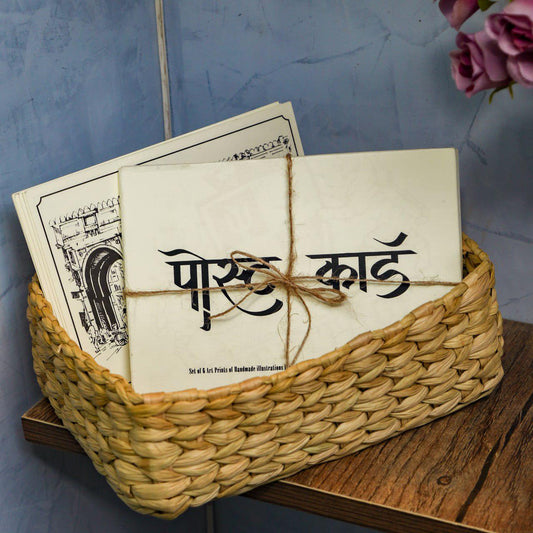 पोस्ट कार्ड
Set of 6 Art Prints of Handmade illustrations